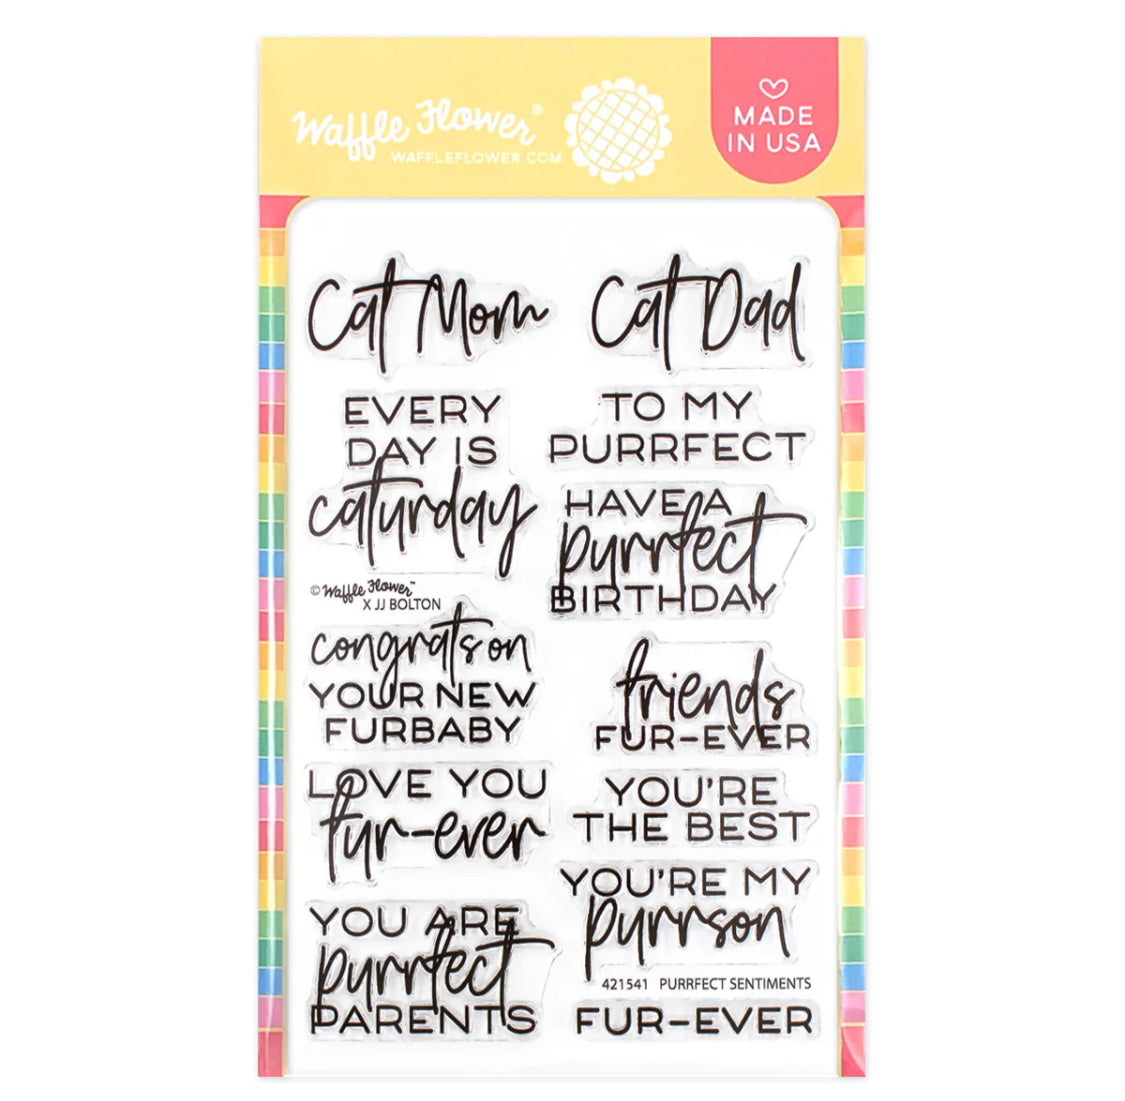 Waffle Flower®
WAFFLEFLOWER.COM
MADE
IN USA
Cat Mom
Cat Dad
EVERY
DAY IS
caturday
TO MY
PURRFECT
HAVE A
purrfect
BIRTHDAY
© Waffle Flower™
X JJ BOLTON
congrats on
YOUR NEW
FURBABY
friends
FUR-EVER
LOVE YOU
fur-ever
YOU'RE
THE BEST
YOU ARE
purrfect
PARENTS
YOU'RE MY
purrson
421541 PURRFECT SENTIMENTS
FUR-EVER